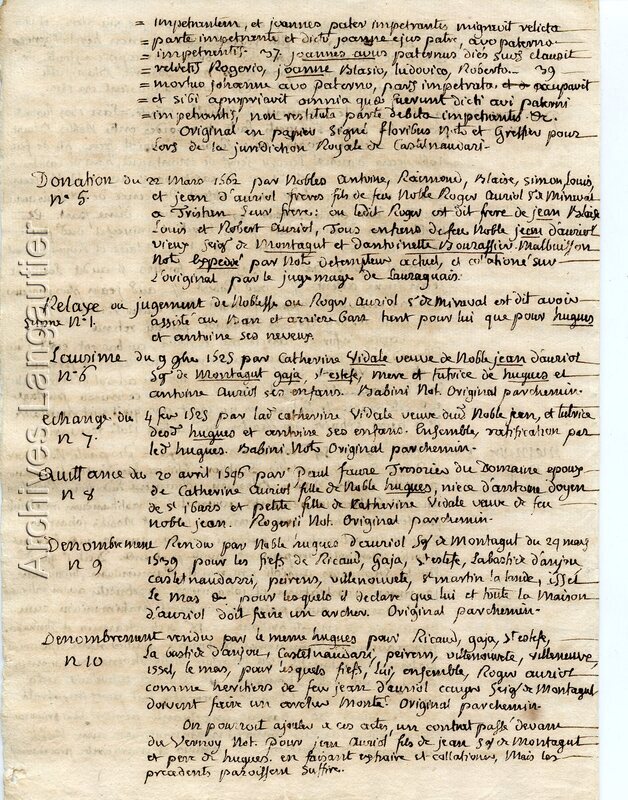 = impetrantem, et joannes pater impetrantis migravit relicta
= parte impetrante et dicto joanne ejus patre, avo paterno
= impetrantis. 37. joannes avus paternus dies suos clausit
= relictis Rogerio, joanne Blasio, ludovico, Roberto. 39
= mortuo johanne avo paterno, pars impetrata occupavit
= et sibi apropriavit omnia quæ fuerunt dicti avi paterni
= impetrantis, non restituta parte debita impetrantis &c.
Original en papier signé floribus Note et Greffier pour
lors de la juridiction Royale de Castelnaudari.
Donation du 22 Mars 1562 par Nobles Antoine, Raimond, Blaise, Simon Louis,
n° 5 et jean d'auriol freres fils de feu Noble Roger Auriol Sr de Miraval
a Tristan leur frere: ou ledit Roger est dit frere de jean Blaise
Louis et Robert Auriol, Tous enfans de feu Noble jean d'auriol
vieux Seigr de Montagut et d'antoinette Bourassier. Malbuisson
Note Expedié par Note detempteur actuel, et colationé sur
l'original par le jugemage de Lauraguais.
Relaxe ou jugement de Noblesse ou Roger Auriol Sr de Miraval est dit avoir
n° 1. assisté au Ban et arriere ban tant pour lui que pour hugues
et antoine ses neveux.
Lausime du 9 9bre 1525 par Catherine Vidale veuve de Noble jean d'auriol
n° 6 Sgr de Montagut gaja, St estefe, mere et tutrice de hugues et
antoine Auriol ses enfans. Babini Not. Original parchemin.
echange du 4 fev 1525 par lad catherine Vidale veuve dud Noble jean, et tutrice
n 7. desd hugues et antoine ses enfans. Ensemble, ratification par
led hugues. Babini Note Original parchemin.
Quittance du 20 avril 1546 par Paul faure Tresorier du Domaine epoux
n 8 de Catherine Auriol fille de Noble hugues, niece d'antoine doyen
de St ibars et petite fille de Catherine Vidale veuve de feu
noble jean. Rogerii Not. Original parchemin.
Denombrement Rendu par Noble hugues d'auriol Sgr de Montagut du 29 mars
n 9 1539 pour les fiefs de Ricaud, Gaja, St estefe, Labastide d'anjou,
castelnaudarri, peirens, villenouvete, St martin la lande, issel
Le mas & pour lesquels il declare que lui et toute la Maison
d'auriol doit faire un archer. Original parchemin.
Denombrement rendu par le meme hugues pour Ricaud, gaja, St estefe,
n 10 La bastide d'anjou, Castelnaudarri, peirens, villenouvete, villeneuve,
issel, le mas, pour lesquels fiefs, lui, ensemble, Roger auriol
comme heritiers de feu jean d'auriol ecuyer Seigr de Montagut
doivent faire un archer Monté. Original parchemin.
On pourroit ajouter a ces actes, un contrat passé devant
du Vernoy Not. pour jean Auriol fils de jean Sgr de Montagut
et pere de hugues. en faisant extraire et collationer, Mais les
precedents paroissent suffire.
Archives Langautier